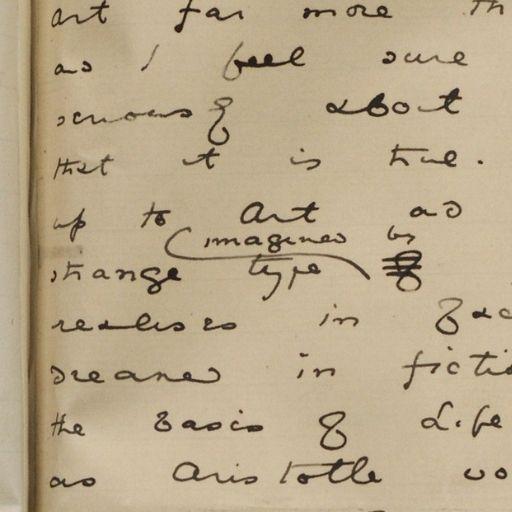 art far more th
as I feel sure
of about
that it is true.
up to Art as
imagined by
strange type of
realises in fac
dreamed in fictio
the basis of Life
as Aristotle wo